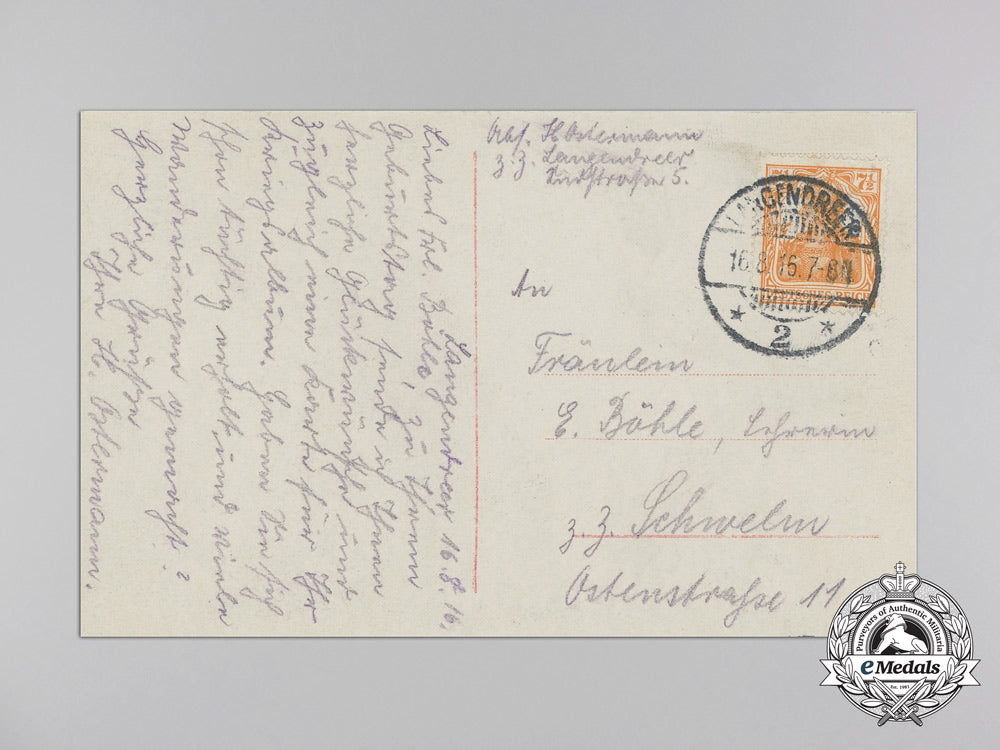 Abs. H. Ostermann
z. Z. Langendreer
Südstraße 5.
7½
LANGENDREER
16.8.16. 7-8N
* 2 *
DEUTSCHES REICH
An
Fräulein
E. Böhle, Lehrerin
z. Z. Schwelm
Ostenstraße 11
Langendreer 16.8.16.
Liebes Frl. Böhle, zu Ihrem
Geburtstag sende ich Ihnen
herzliche Glückwünsche und
zugleich eine Karte für Ihr
Kriegsalbum. Haben Sie sich
schon tüchtig erholt und viele
Wanderungen gemacht?
Herzliche Grüße
Ihre H. Ostermann.
Purveyors of Authentic Militaria
eMedals
Est. 1983